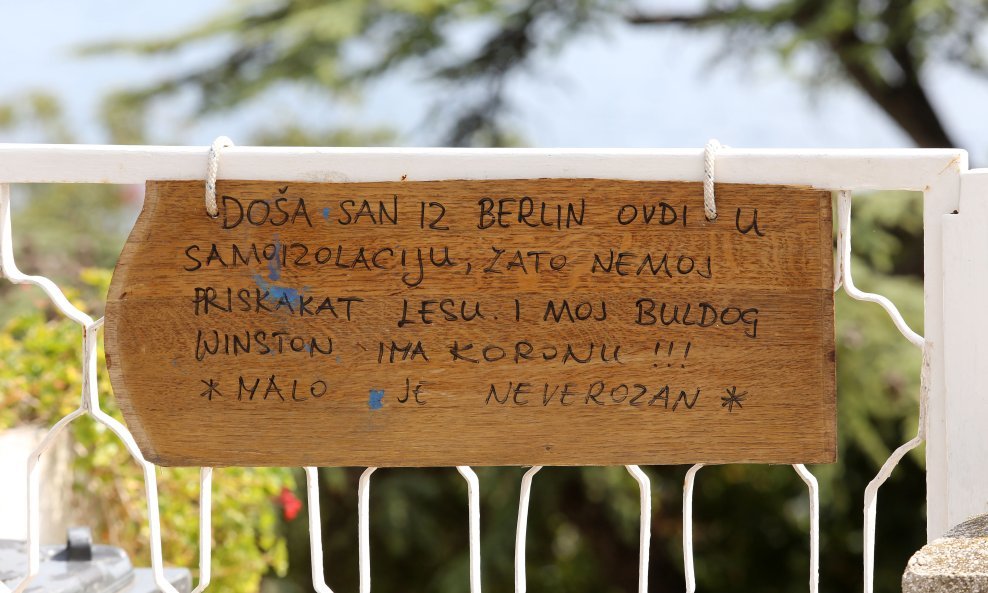 DOŠA SAN IZ BERLIN OVDI U
SAMOIZOLACIJU, ZATO NEMOJ
PRISKAKAT LESU. I MOJ BULDOG
WINSTON IMA KORONU !!!
* MALO JE NEVEROZAN *